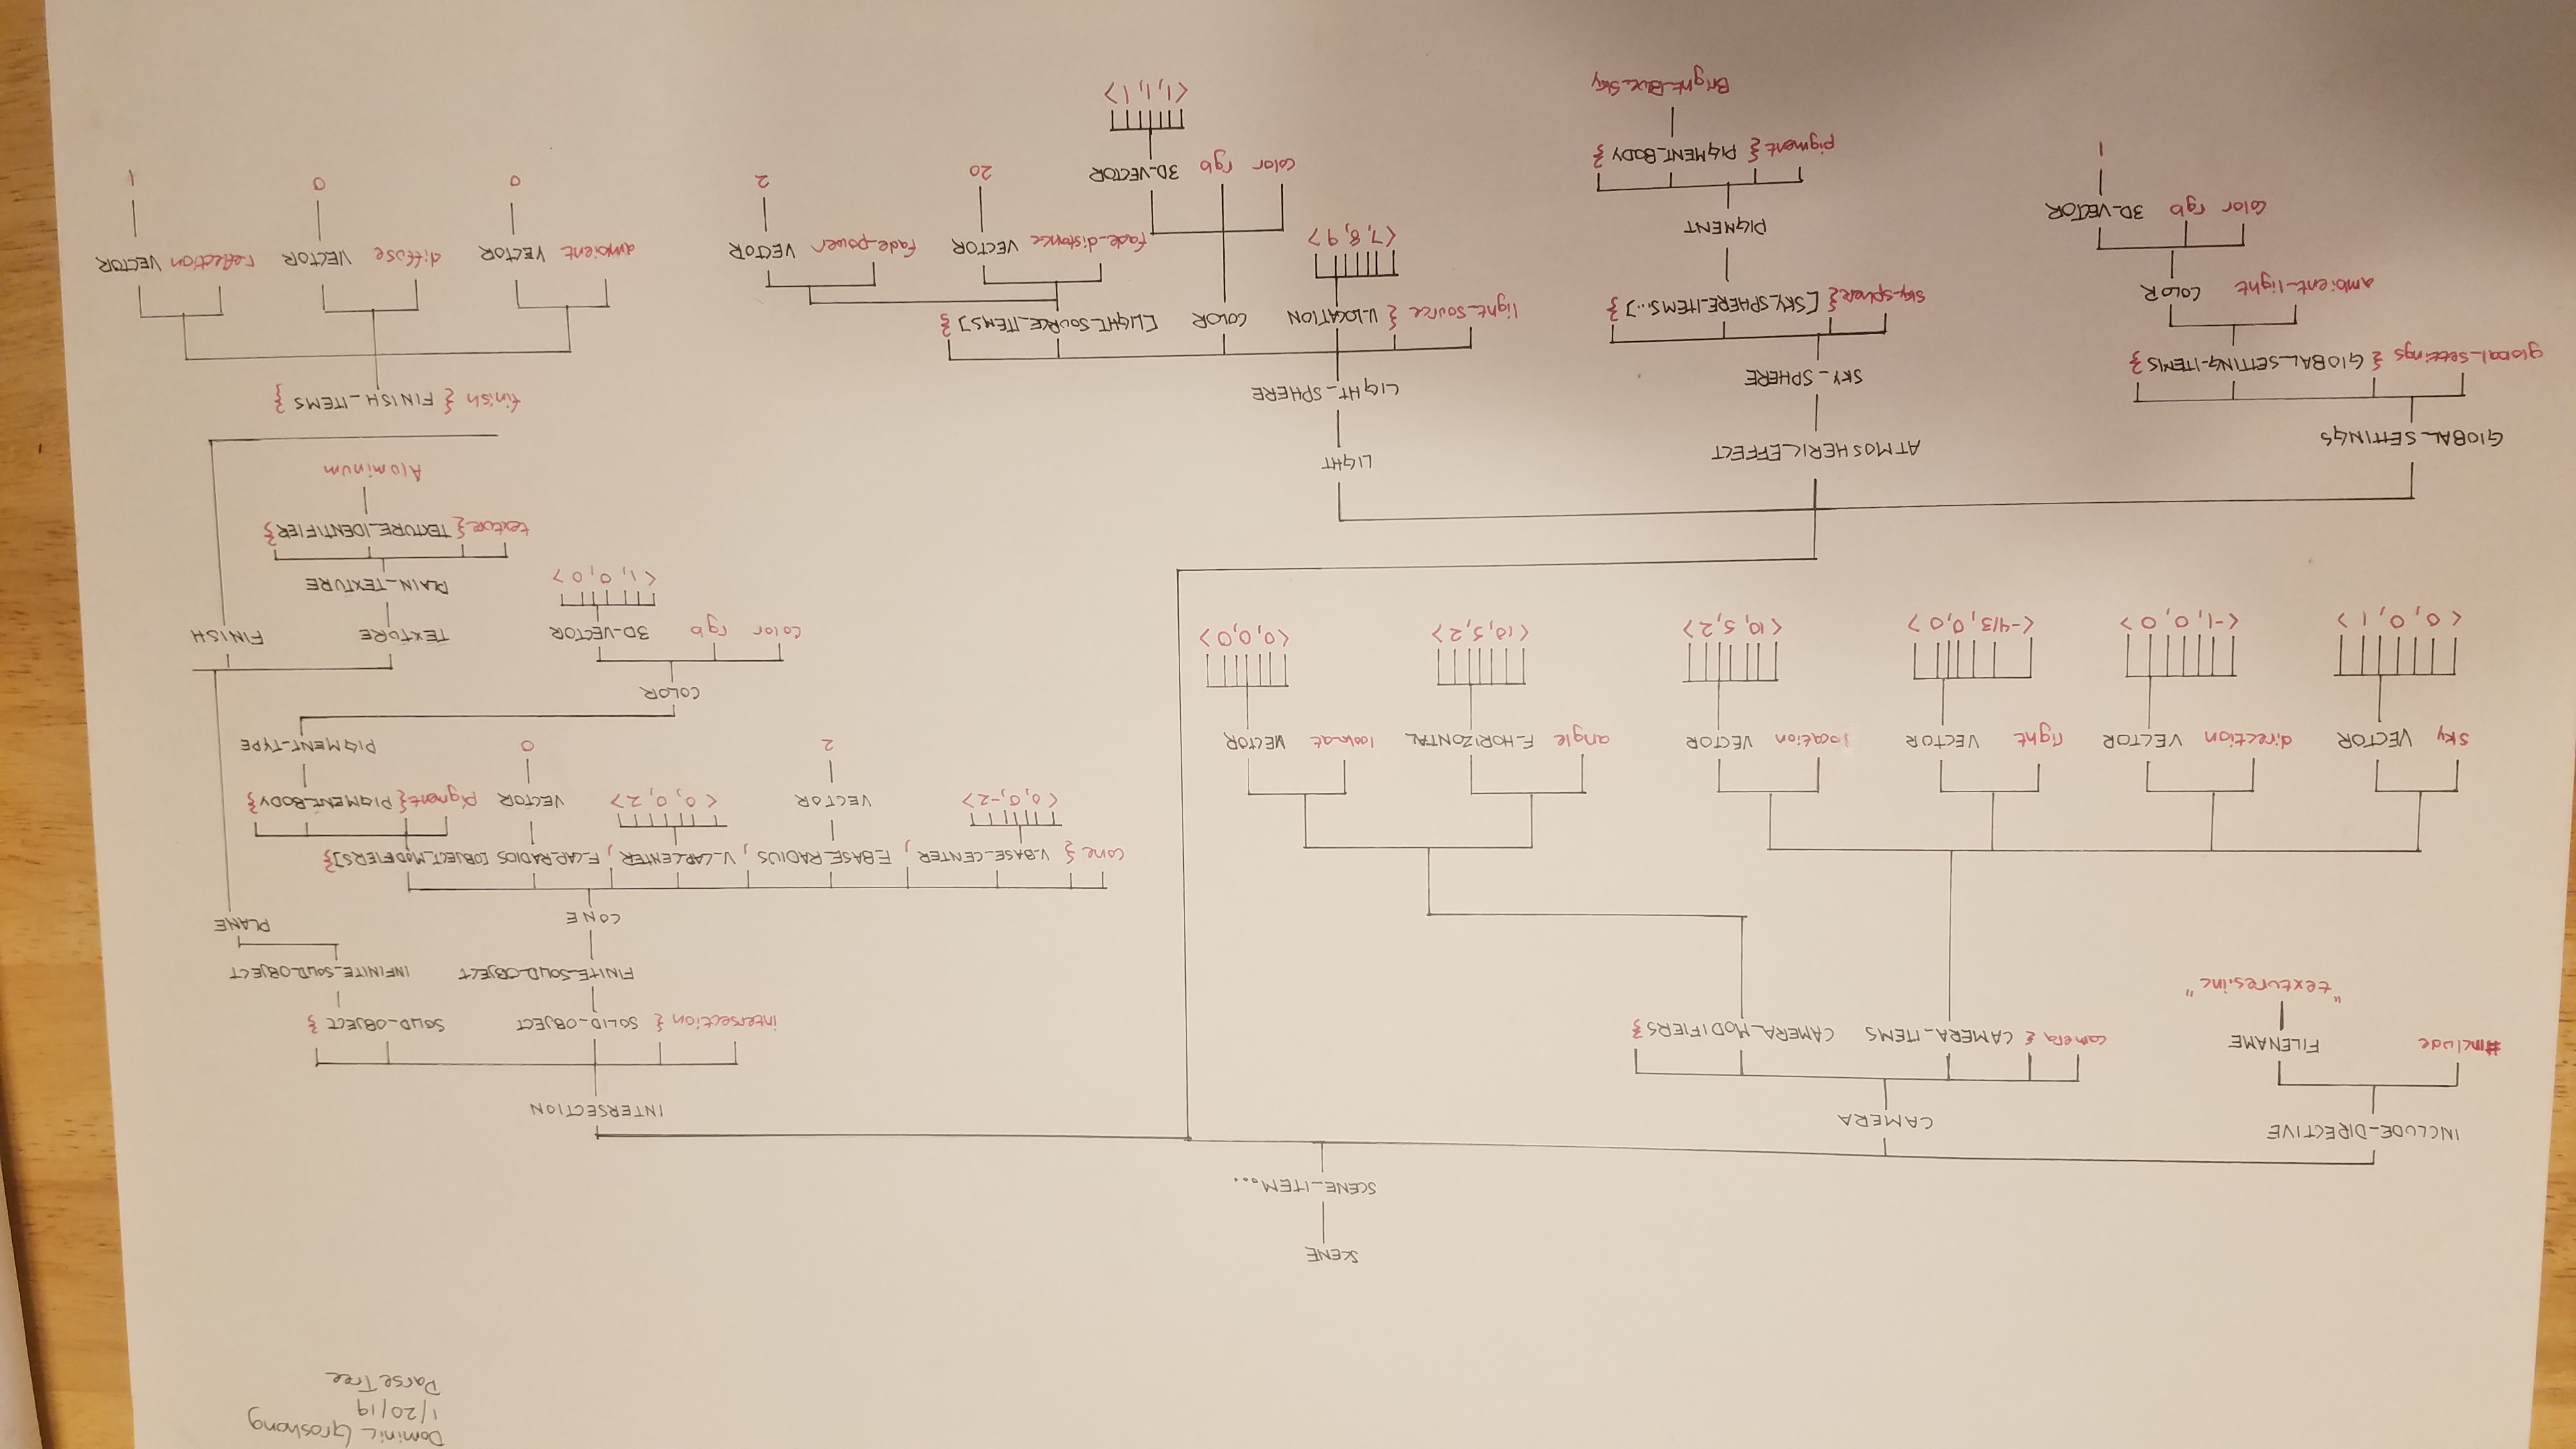 Dominic Groshong
1/20/19
Parse Tree
SCENE
SCENE_ITEM...
INCLUDE_DIRECTIVE
#include
FILENAME
"textures.inc"
CAMERA
camera { CAMERA_ITEMS CAMERA_MODIFIERS }
sky VECTOR
< 0, 0, 1 >
direction VECTOR
<-1, 0, 0 >
right VECTOR
<-4/3, 0, 0 >
location VECTOR
< 10, 5, 2 >
angle F_HORIZONTAL
< 10, 5, 2 >
look_at VECTOR
< 0, 0, 0 >
INTERSECTION
intersection { SOLID_OBJECT SOLID_OBJECT }
FINITE_SOLID_OBJECT
INFINITE_SOLID_OBJECT
CONE
PLANE
cone { V_BASE_CENTER , F_BASE_RADIUS , V_CAP_CENTER , F_CAP_RADIOS [OBJECT_MODIFIERS] }
< 0, 0, -2 >
VECTOR
2
< 0, 0, 2 >
VECTOR
0
pigment { PIGMENT_BODY }
PIGMENT_TYPE
COLOR
color rgb 3D_VECTOR
< 1, 0, 0 >
TEXTURE
FINISH
PLAIN_TEXTURE
texture { TEXTURE_IDENTIFIER }
Aluminum
finish { FINISH_ITEMS }
ambient VECTOR
0
diffuse VECTOR
0
reflection VECTOR
1
GLOBAL_SETTINGS
global_settings { GLOBAL_SETTING_ITEMS }
ambient_light COLOR
color rgb 3D_VECTOR
1
ATMOSHERIC_EFFECT
SKY_SPHERE
sky_sphere { [SKY_SPHERE_ITEMS...] }
PIGMENT
pigment { PIGMENT_BODY }
Bright_Blue_Sky
LIGHT
LIGHT_SPHERE
light_source { V_LOCATION COLOR [LIGHT_SOURCE_ITEMS] }
< 7, 8, 9 >
color rgb 3D_VECTOR
< 1, 1, 1 >
fade_distance VECTOR
20
fade_power VECTOR
2